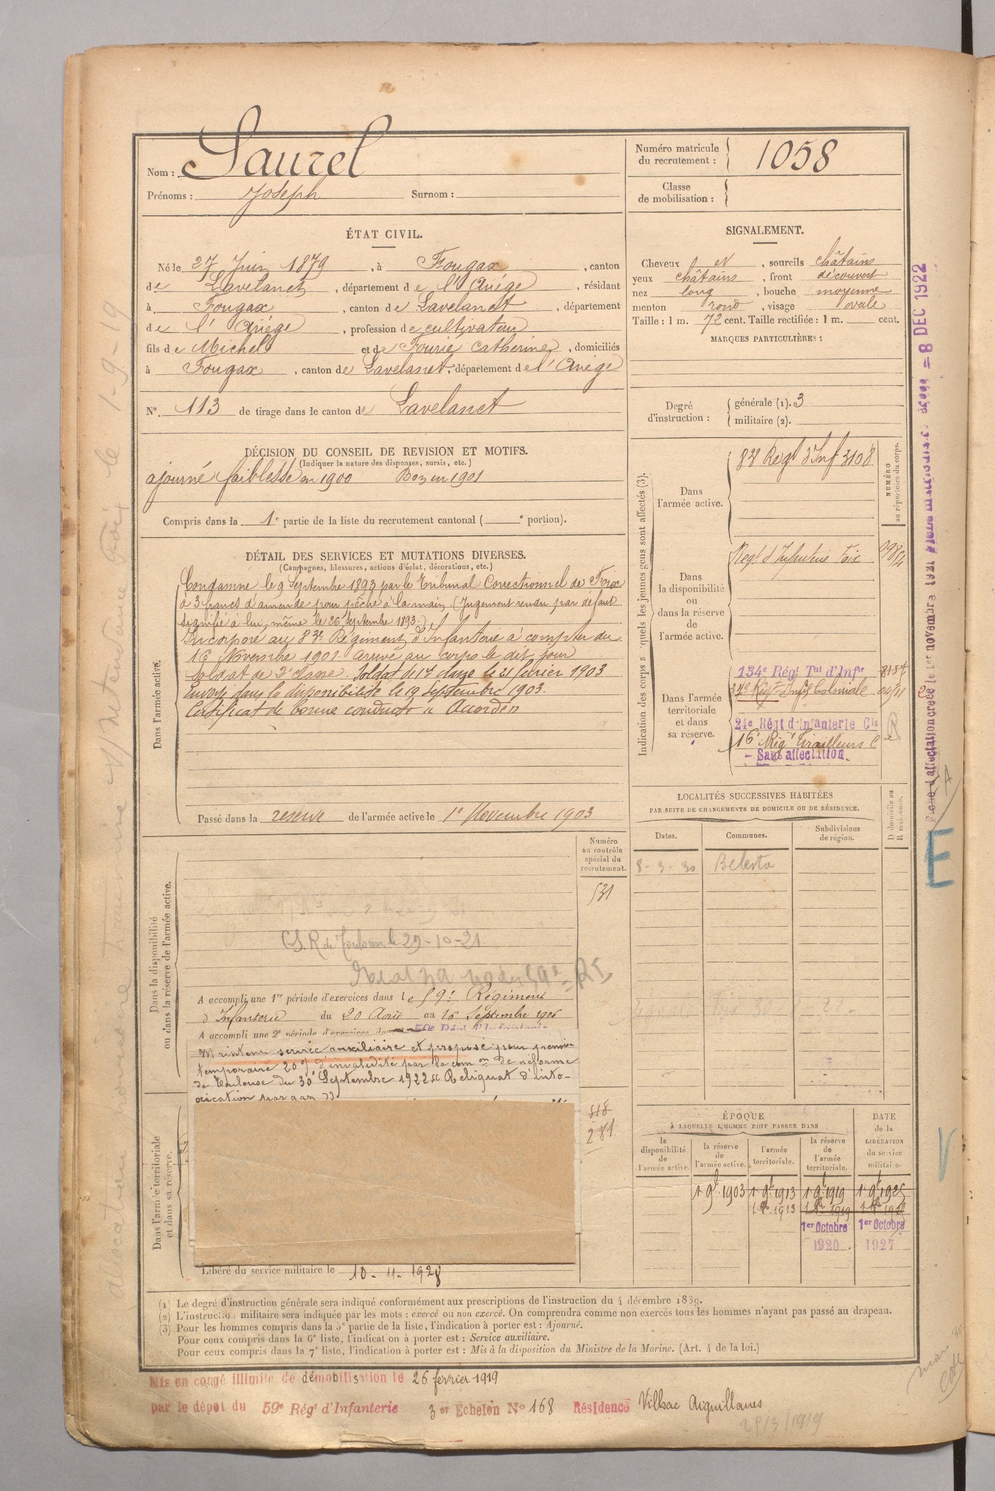 Nom : Laurel
Prénoms : Joseph Surnom :
Numéro matricule du recrutement : 1058
Classe de mobilisation :
ÉTAT CIVIL.
Né le 27 Juin 1879, à Fougax, canton
de Lavelanet, département de l'Ariége, résidant
à Fougax, canton de Lavelanet, département
de l'Ariége, profession de cultivateur
fils de Michel et de Fourié Catherine, domiciliés
à Fougax, canton de Lavelanet, département de l'Ariége
N° 113 de tirage dans le canton de Lavelanet
SIGNALEMENT.
Cheveux et, sourcils châtains
yeux châtains, front découvert
nez long, bouche moyenne
menton rond, visage ovale
Taille : 1 m. 72 cent. Taille rectifiée : 1 m. cent.
MARQUES PARTICULIÈRES :
Degré d'instruction : générale (1). 3
militaire (2).
DÉCISION DU CONSEIL DE REVISION ET MOTIFS.
(Indiquer la nature des dispenses, sursis, etc.)
ajourné faiblesse en 1900 Bon en 1901
Compris dans la 1e partie de la liste du recrutement cantonal ( e portion).
DÉTAIL DES SERVICES ET MUTATIONS DIVERSES.
(Campagnes, blessures, actions d'éclat, décorations, etc.)
Dans l'armée active.
Condamné le 9 Septembre 1893 par le Tribunal Correctionnel de Foix
à 3 francs d'amende pour pêche à la main (Jugement rendu par défaut
signifié à lui même le 26 septembre 1893.)
Incorporé au 83e Régiment d'Infanterie à compter du
16 Novembre 1901 arrivé au corps le dit jour
soldat de 2e classe. Soldat de 1e classe le 21 février 1903
Envoyé dans la disponibilité le 19 septembre 1903.
Certificat de bonne conduite "Accordé"
Passé dans la réserve de l'armée active le 1er Novembre 1903
Indication des corps auxquels les jeunes gens sont affectés (3).
NUMÉRO au répertoire du corps.
Dans l'armée active.
83e Regt d'Inf 3108
Dans la disponibilité ou dans la réserve de l'armée active.
Regt d'Infanterie Foix
Dans l'armée territoriale et dans sa réserve.
134e Régt Tal d'Infie
Regt Infie Coloniale
24e Régt d'Infanterie Cle
16e Régt Tirailleurs
- Sans affectation.
LOCALITÉS SUCCESSIVES HABITÉES
PAR SUITE DE CHANGEMENTS DE DOMICILE OU DE RÉSIDENCE.
Dates. Communes. Subdivisions de région. D domicile ou R résidence.
8-3-30 Belesta
Numéro au contrôle spécial du recrutement.
531
Dans la disponibilité ou dans la réserve de l'armée active.
C.S.R de Toulouse le 29-10-21
A accompli une 1re période d'exercices dans le 59e Régiment
d'Infanterie du 20 Août au 16 Septembre 1906
A accompli une 2e période d'exercices dans
Maintenu service auxiliaire et proposé pour pension
temporaire 20% d'invalidité par la comon de réforme
de Toulouse du 30 Septembre 1922 « Reliquat d'into-
xication par gaz »
Dans l'armée territoriale et dans sa réserve.
281
Libéré du service militaire le 10-11-1928
ÉPOQUE
À LAQUELLE L'HOMME DOIT PASSER DANS
la disponibilité de l'armée active.
la réserve de l'armée active.
l'armée territoriale.
la réserve de l'armée territoriale.
DATE de la LIBÉRATION du service militaire.
1 9e 1903 1 9e 1913 1 9e 1919
1er Octobre 1920
1er Octobre 1927
(1) Le degré d'instruction générale sera indiqué conformément aux prescriptions de l'instruction du 4 décembre 1889.
(2) L'instruction militaire sera indiquée par les mots : exercé ou non exercé. On comprendra comme non exercés tous les hommes n'ayant pas passé au drapeau.
(3) Pour les hommes compris dans la 5e partie de la liste, l'indication à porter est : Ajourné.
Pour ceux compris dans la 6e liste, l'indication à porter est : Service auxiliaire.
Pour ceux compris dans la 7e liste, l'indication à porter est : Mis à la disposition du Ministre de la Marine. (Art. 4 de la loi.)
Mis en congé illimité de démobilisation le 26 février 1919
par le dépot du 59e Régt d'Infanterie 3er Echelon N° 168 Résidence
28/3/1919
= 8 DEC 1922
E